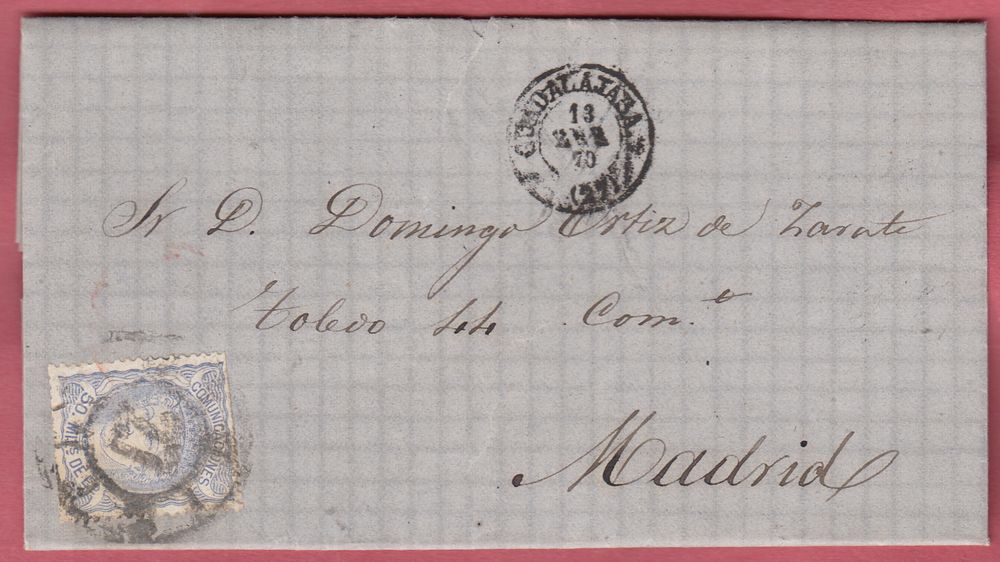 GUADALAJARA
13
ENE
70
(27)
Sr D. Domingo Ortiz de Zarate
Toledo 44 Com.º
Madrid
COMUNICACIONES
50 MILS DE E